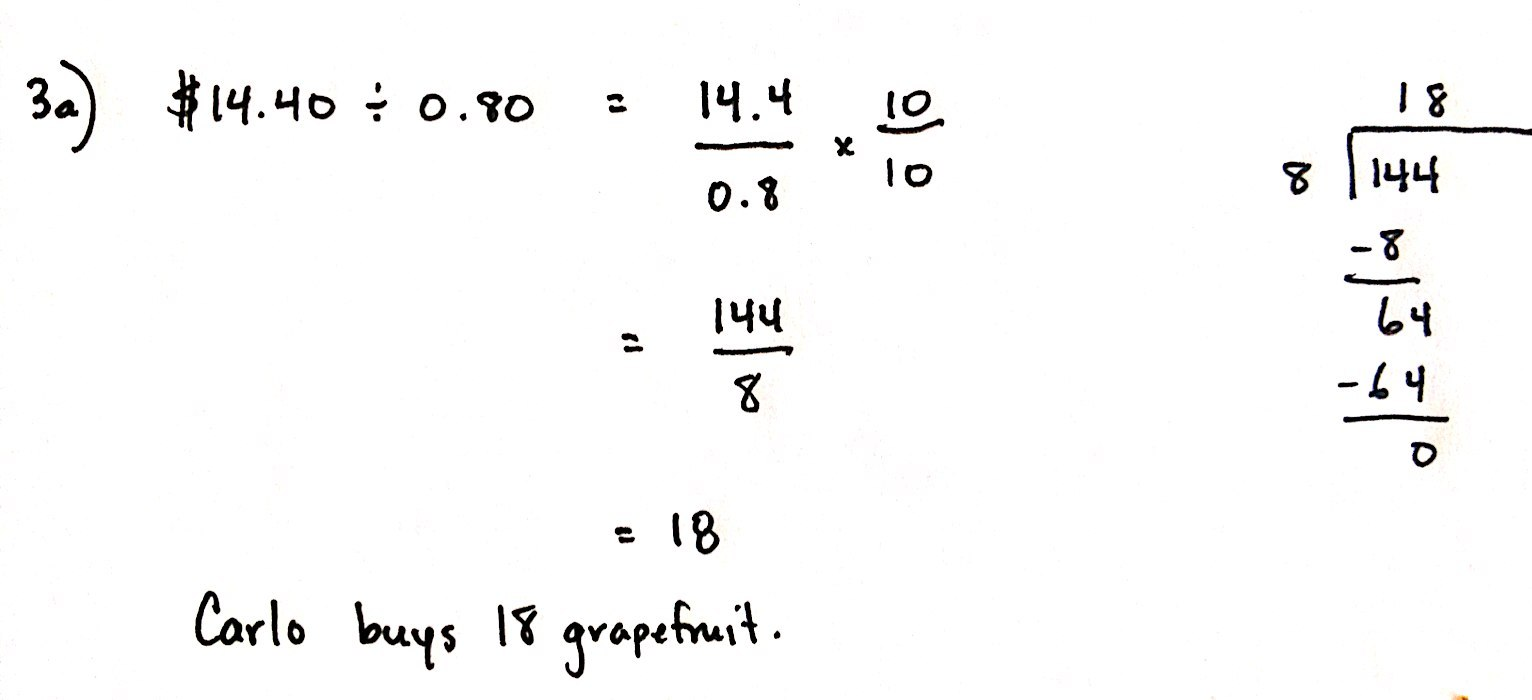 3a) $14.40 ÷ 0.80 = 14.4/0.8 × 10/10
= 144/8
= 18
Carlo buys 18 grapefruit.
18
8 144
-8
64
-64
0